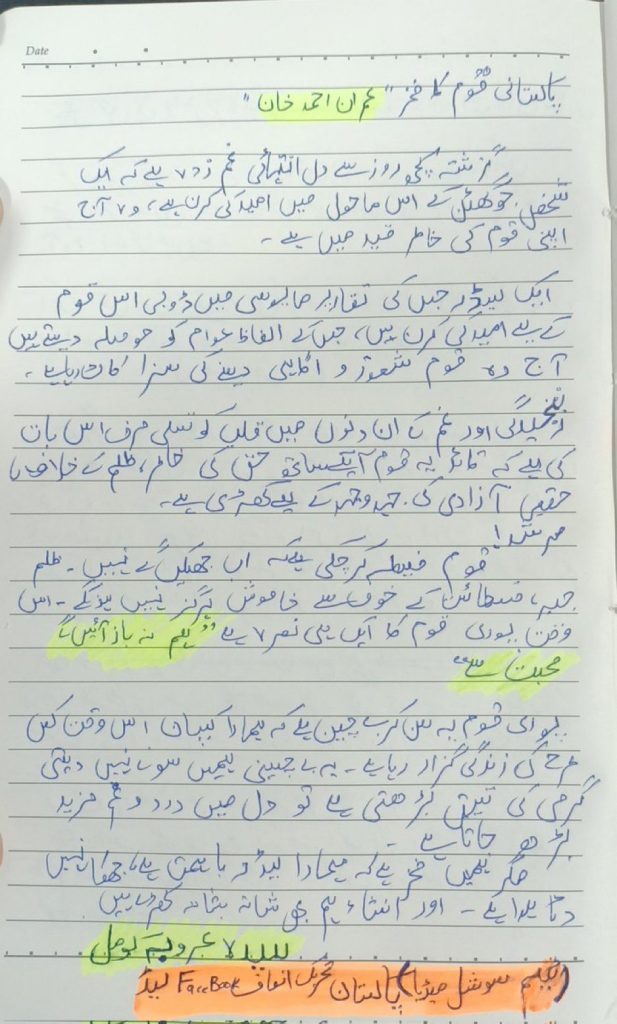 Date
پاکستانی قوم کا فخر "عمران احمد خان"
گزشتہ کچھ روز سے دل انتہائی غم زدہ ہے کہ ایک
شخص جو گھٹن کے اس ماحول میں امید کی کرن ہے، وہ آج
اپنی قوم کی خاطر قید میں ہے۔
ایک لیڈر جس کی تقاریر مایوسی میں ڈوبی اس قوم
کے لیے امید کی کرن ہیں، جس کے الفاظ عوام کو حوصلہ دیتے ہیں
آج وہ قوم شعور و آگاہی دینے کی سزا کاٹ رہا ہے۔
رنجیدگی اور غم کے ان دنوں میں قلب کو تسلی صرف اس بات
کی ہے کہ قائد یہ قوم آپکے ساتھ حق کی خاطر، ظلم کے خلاف
حقیقی آزادی کی جدوجہد کے لیے کھڑی ہے۔
مرشد!
قوم فیصلہ کر چکی ہے کہ اب جھکیں گے نہیں۔ ظلم
جبر، فسطائیت کے خوف سے خاموش ہرگز نہیں ہونگے۔ اس
وقت پوری قوم کا ایک ہی نعرہ ہے "ہم نہ باز آئیں گے
محبت سے"
پوری قوم یہ سن کر بے چین ہے کہ ہمارا کپتان اس وقت کس
طرح کی زندگی گزار رہا ہے۔ یہ بے چینی ہمیں سونے نہیں دیتی
گرمی کی تپش بڑھتی ہے تو دل میں درد و غم مزید
بڑھ جاتا ہے۔
مگر ہمیں فخر ہے کہ ہمارا لیڈر باہمت ہے، جھکا نہیں
ڈٹا ہوا ہے۔ اور انشاء ہم بھی شانہ بشانہ کھڑے ہیں
سیدہ عروبہ کومل
(ٹیم سوشل میڈیا) پاکستان تحریک انصاف FaceBook لیڈ